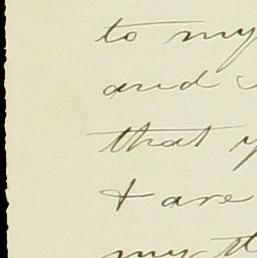 to my
and
that
& are
my